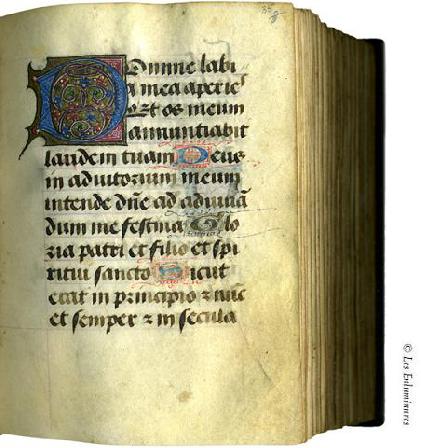 Domine labi
a mea aperies
Et os meum
annuntiabit
laudem tuam Deus
in adiutorium meum
intende dñe ad adiuuā
dum me festina Glo
ria patri et filio et spi
ritui sancto Sicut
erat in principio ⁊ nūc
et semper ⁊ in secula
© Les Enluminures